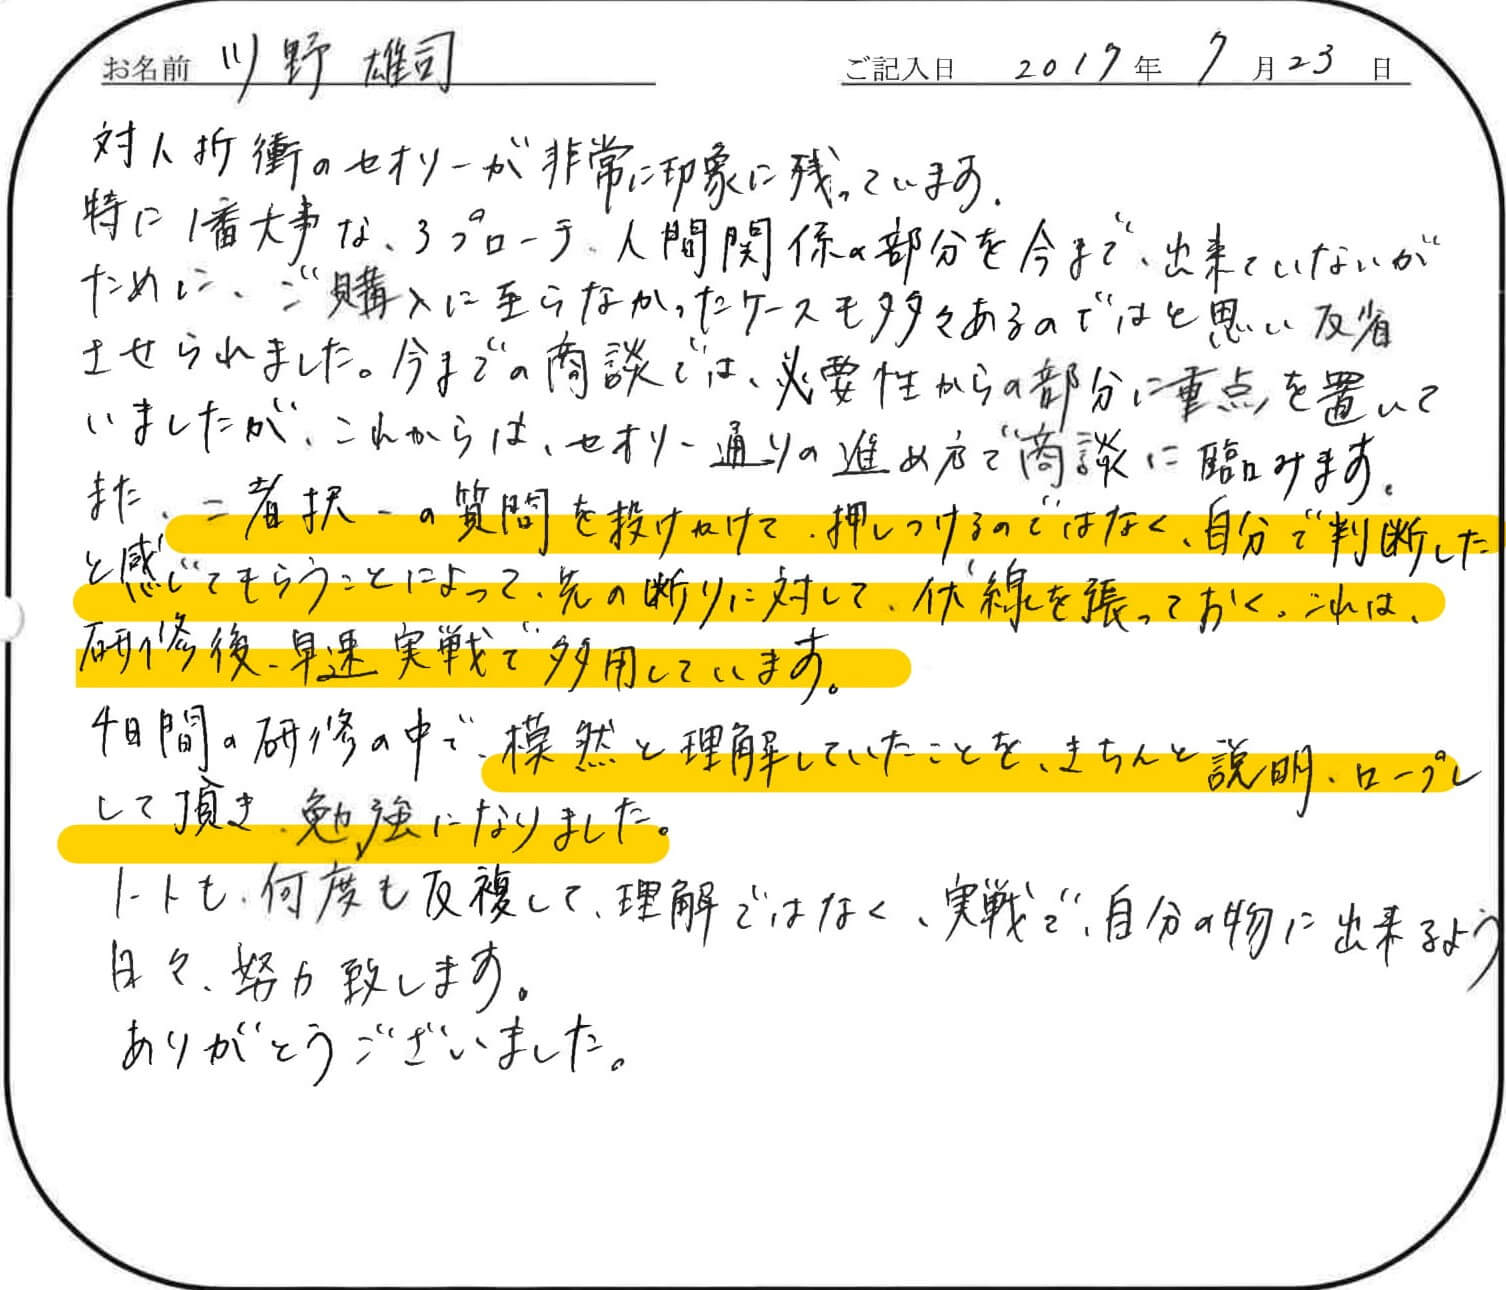 お名前 川野 雄司 ご記入日 2017年 7月23日
対人折衝のセオリーが非常に印象に残っています。
特に1番大事な、アプローチ、人間関係の部分を今まで、出来ていないが
ために、ご購入に至らなかったケースも多々あるのではと思い反省
させられました。今までの商談では、必要性からの部分に重点を置いて
いましたが、これからは、セオリー通りの進め方で商談に臨みます。
また、二者択一の質問を投げかけて、押しつけるのではなく、自分で判断した
と感じてもらうことによって、先の断りに対して、伏線を張っておく。これは、
研修後、早速実戦で多用しています。
4日間の研修の中で、模然と理解していたことを、きちんと説明、ロープレ
して頂き、勉強になりました。
トートも、何度も反複して、理解ではなく、実戦で、自分の物に出来るよう
日々、努力致します。
ありがとうございました。